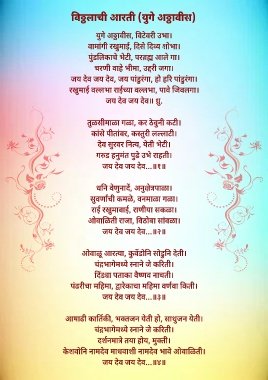 विठ्ठलाची आरती (युगे अठ्ठावीस)
युगे अठ्ठावीस, विटेवरी उभा।
वामांगी रखुमाई, दिसे दिव्य शोभा।
पुंडलिकाचे भेटी, परब्रह्म आले गा।
चरणी वाहे भीमा, उद्धरी जगा।
जय देव जय देव, जय पांडुरंगा, हो हरि पांडुरंगा।
रखुमाई वल्लभा राईच्या वल्लभा, पावे जिवलगा।
जय देव जय देव।। ध्रु.
तुळसीमाळा गळा, कर ठेवुनी कटी।
कांसे पीतांबर, कस्तुरी लल्लाटी।
देव सुरवर नित्य, येती भेटी।
गरुड हनुमंत पुढे उभे राहती।
जय देव जय देव...॥१॥
धनि वेणुनादें, अनुक्षेत्रपाळा।
सुवर्णाची कमळे, वनमाळा गळा।
राई रखुमाबाई, राणीया सकळा।
ओवाळिती राजा, विठोबा सांवळा।
जय देव जय देव...॥२॥
ओवाळू आरत्या, कुर्वंड्यांनि सोडुनि देती।
चंद्रभागेमध्ये स्नाने जे करिती।
दिंड्या पताका वैष्णव नाचती।
पंढरीचा महिमा, द्वारकेचा महिमा वर्णावा किती।
जय देव जय देव...॥३॥
आषाढी कार्तिकी, भक्तजन येती हो, साधुजन येती।
चंद्रभागेमध्ये स्नाने जे करिती।
दर्शनमात्रे तया होय, मुक्ती।
केशवांनि नामदेव माधवाशी नामदेव भावे ओवाळिती।
जय देव जय देव...॥४॥